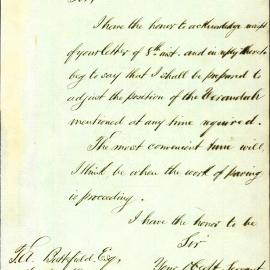 Sir,
I have the honor to acknowledge receipt
of your letter of 8th inst. and in reply thereto
beg to say that I shall be prepared to
adjust the position of the Verandah
mentioned at any time required.
The most convenient time will
I think be when the work of paving
is proceeding.
I have the honor to be
Sir
Esq.,
Your Obedt Servant